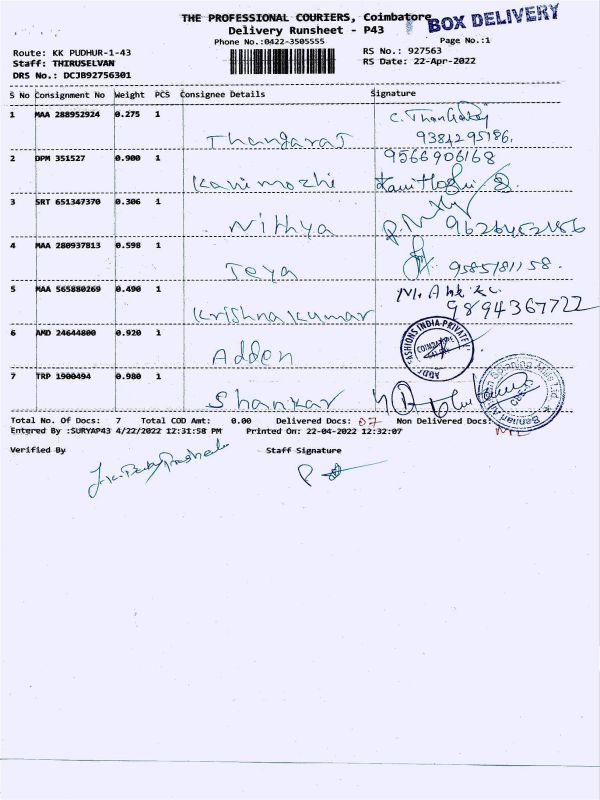 THE PROFESSIONAL COURIERS, Coimbatore
BOX DELIVERY
Delivery Runsheet - P43
Phone No.:0422-3505555
Page No.:1
Route: KK PUDHUR-1-43
RS No.: 927563
Staff: THIRUSELVAN
RS Date: 22-Apr-2022
DRS No.: DCJB92756301
S No Consignment No Weight PCS Consignee Details Signature
1 MAA 288952924 0.275 1
Thangaraj 9384295186.
2 DPM 351527 0.900 1 9566906168
Kanimozhi
3 SRT 651347370 0.306 1
Nithya 9626452156
4 MAA 280937813 0.598 1
Jeya 9585781158.
5 MAA 565880269 0.490 1
Krishna kumar 9894367722
6 AMD 24644800 0.920 1
Adden
COIMBATORE
7 TRP 1900494 0.980 1
Shankar
Total No. Of Docs: 7 Total COD Amt: 0.00 Delivered Docs: 07 Non Delivered Docs: NIL
Entered By :SURYAP43 4/22/2022 12:31:58 PM Printed On: 22-04-2022 12:32:07
Verified By Staff Signature